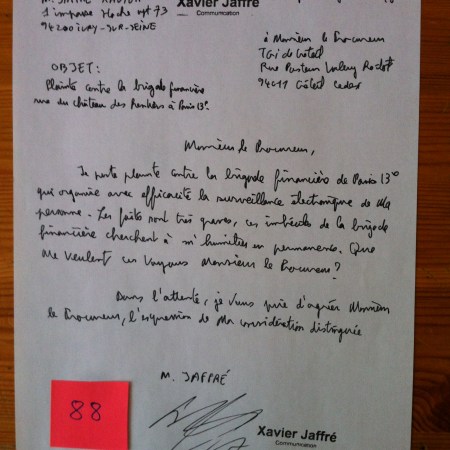 M. JAFFRÉ XAVIER
1 impasse Hoche apt 73
94200 IVRY-SUR-SEINE
Xavier Jaffré
Communication
à Monsieur le Procureur
TGI de Créteil
Rue Pasteur Valery Radot
94011 Créteil Cedex
OBJET:
Plainte contre la brigade financière
rue du château des Rentiers à Paris 13e
Monsieur le Procureur,
Je porte plainte contre la brigade financière de Paris 13e
qui organise avec efficacité la surveillance électronique de ma
personne. Les faits sont très graves, ces imbéciles de la brigade
financière cherchent à m'humilier en permanence. Que
me veulent ces voyous Monsieur le Procureur?
Dans l'attente, je vous prie d'agréer Monsieur
le Procureur, l'expression de ma considération distinguée
M. JAFFRÉ
88
Xavier Jaffré
Communication